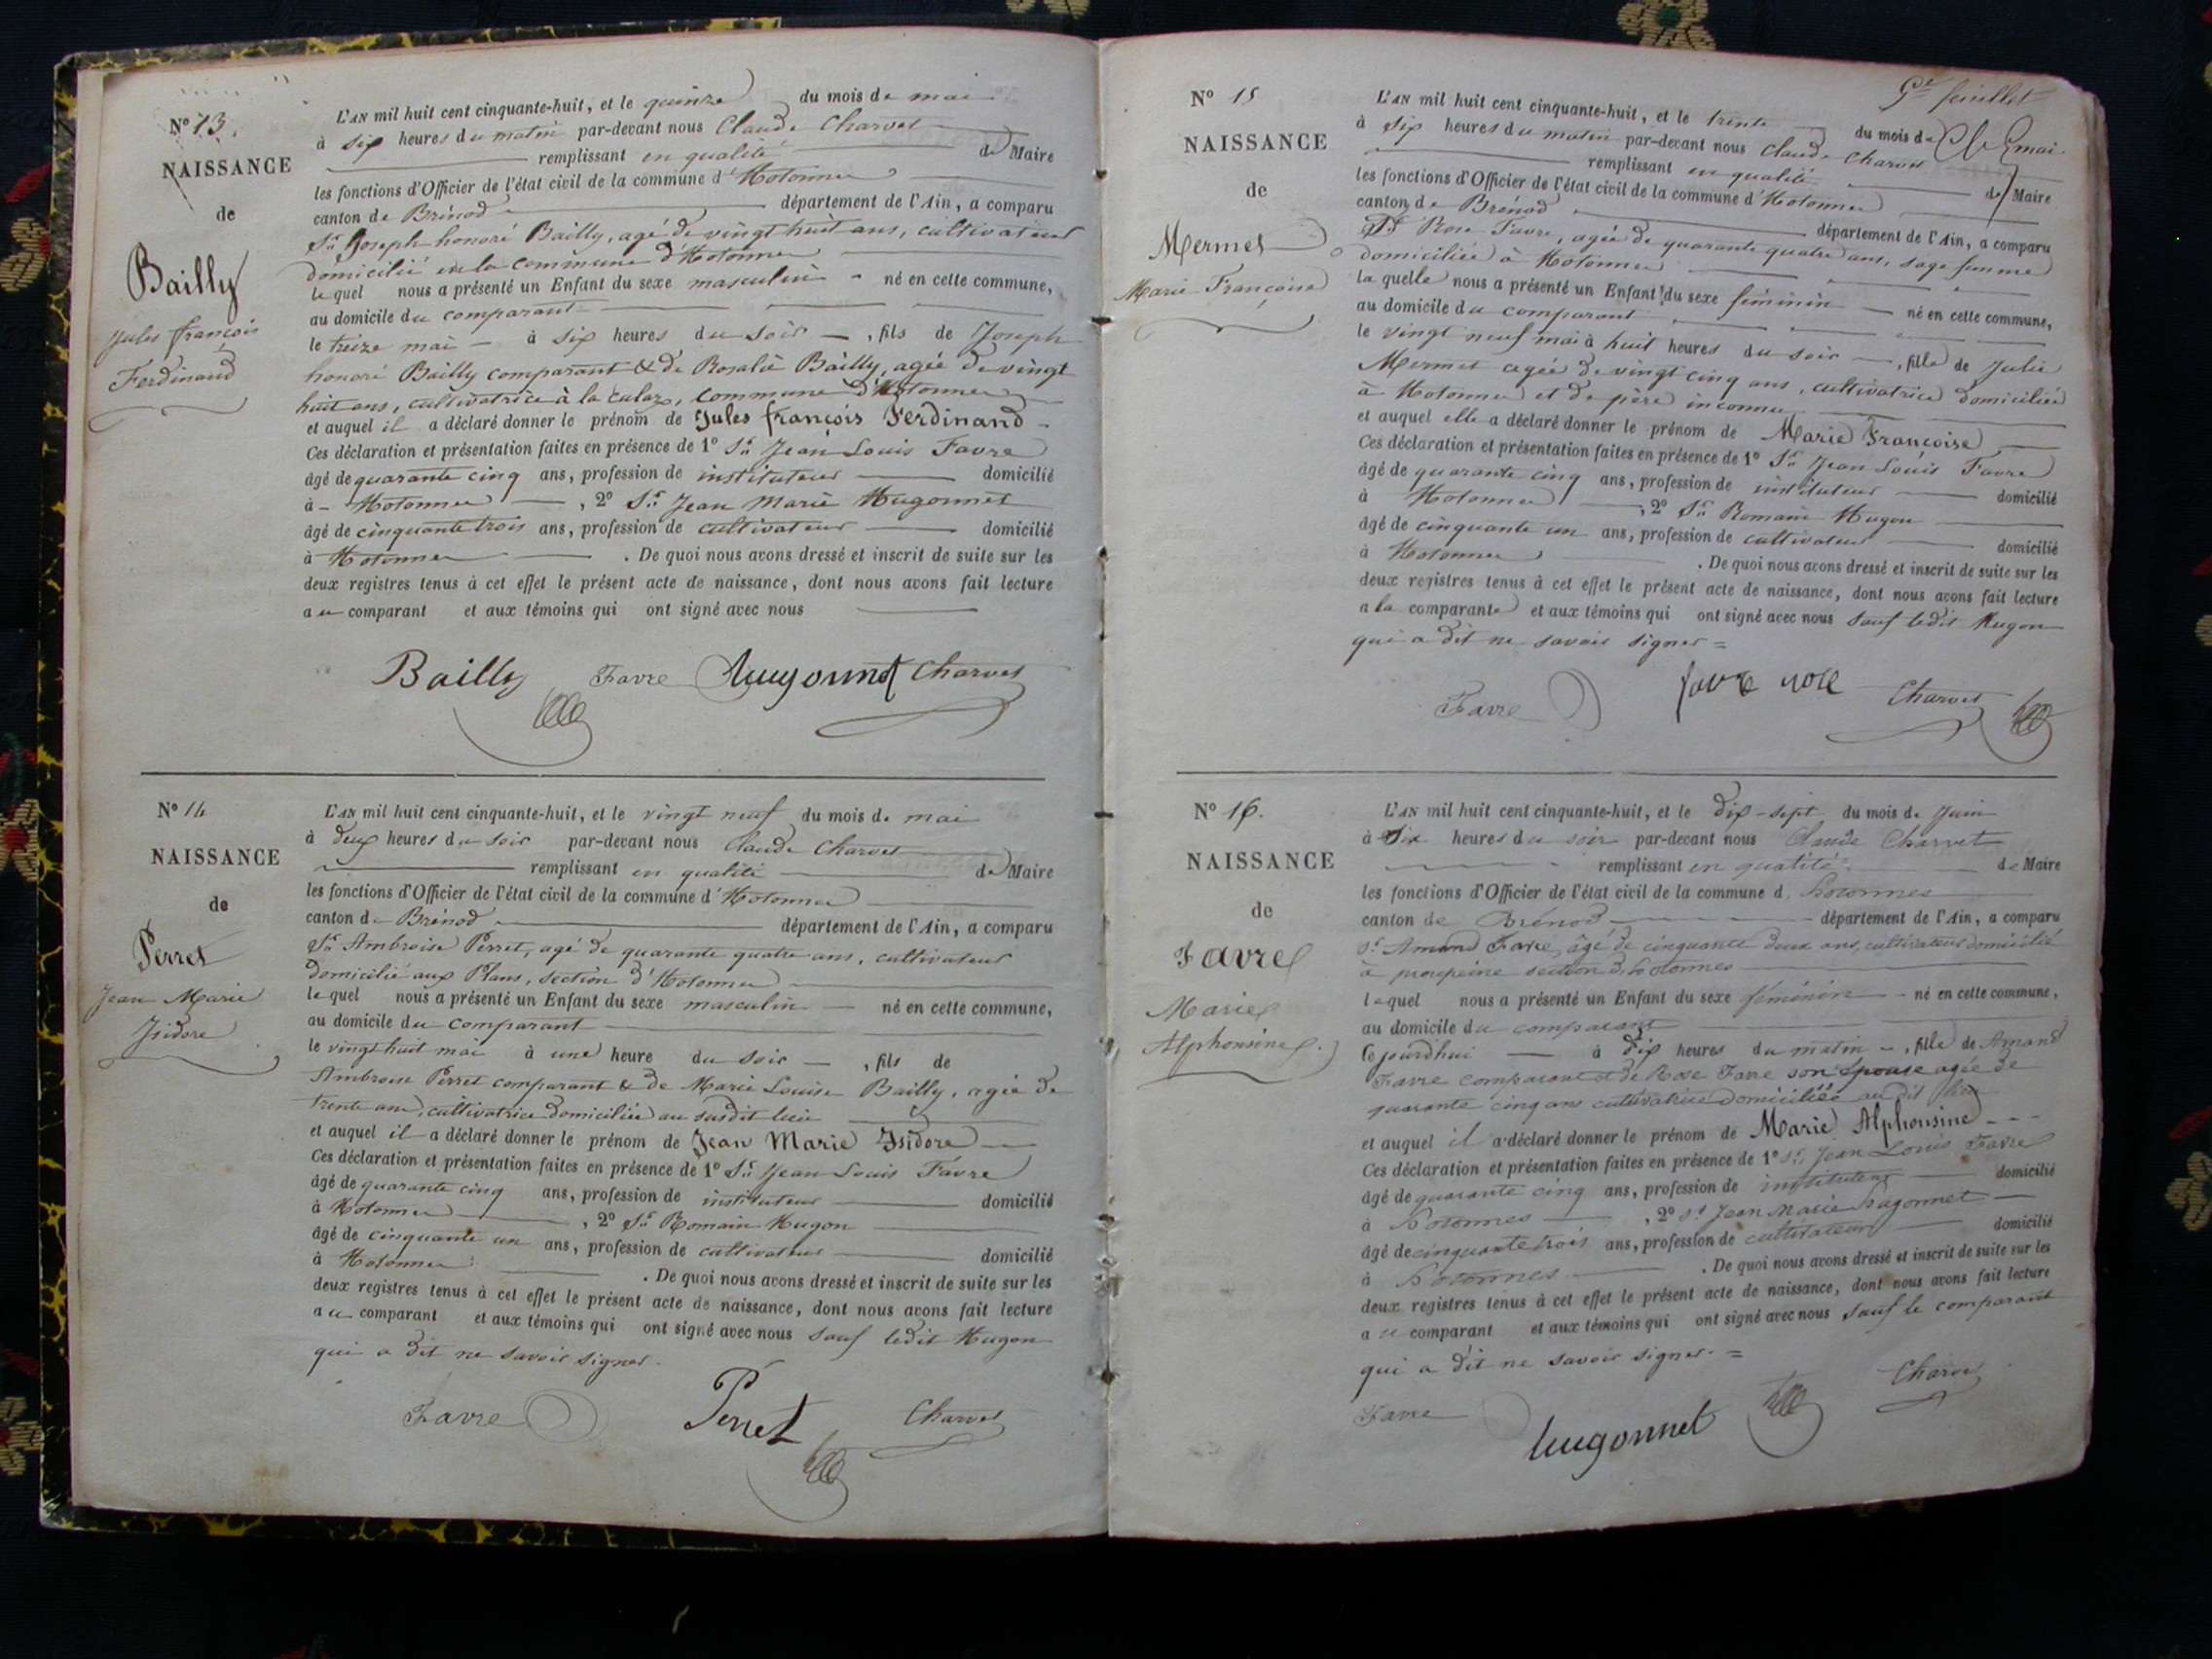 N° 13.
NAISSANCE
de
Bailly
Jules françois
Ferdinand
L'AN mil huit cent cinquante-huit, et le quinze du mois de mai
à six heures du matin par-devant nous Claude Charvet
remplissant en qualité de Maire
les fonctions d'Officier de l'état civil de la commune d'Hotonnes
canton de Brénod département de l'Ain, a comparu
Sr Joseph honoré Bailly, agé de vingt huit ans, cultivateur
domicilié en la commune d'Hotonnes
lequel nous a présenté un Enfant du sexe masculin né en cette commune,
au domicile du comparant
le treize mai à six heures du soir, fils de Joseph
honoré Bailly comparant & de Rosalie Bailly, agée de vingt
huit ans, cultivatrice à la commune d'Hotonnes
et auquel il a déclaré donner le prénom de Jules françois Ferdinand
Ces déclaration et présentation faites en présence de 1° Sr Jean Louis Favre
âgé de quarante cinq ans, profession de instituteur domicilié
à Hotonnes, 2° Sr Jean Marie Hugonnet
âgé de cinquante trois ans, profession de cultivateur domicilié
à Hotonnes. De quoi nous avons dressé et inscrit de suite sur les
deux registres tenus à cet effet le présent acte de naissance, dont nous avons fait lecture
au comparant et aux témoins qui ont signé avec nous
Bailly Favre hugonnet Charvet
N° 14
NAISSANCE
de
Perret
Jean Marie
Isidore
L'AN mil huit cent cinquante-huit, et le vingt neuf du mois de mai
à deux heures du soir par-devant nous Claude Charvet
remplissant en qualité de Maire
les fonctions d'Officier de l'état civil de la commune d'Hotonnes
canton de Brénod département de l'Ain, a comparu
Sr Ambroise Perret, agé de quarante quatre ans, cultivateur
domicilié aux Plans, section d'Hotonnes
lequel nous a présenté un Enfant du sexe masculin né en cette commune,
au domicile du comparant
le vingt huit mai à une heure du soir, fils de
Ambroise Perret comparant & de Marie Louise Bailly, agée de
trente ans, cultivatrice domiciliée au susdit lieu
et auquel il a déclaré donner le prénom de Jean Marie Isidore
Ces déclaration et présentation faites en présence de 1° Sr Jean Louis Favre
âgé de quarante cinq ans, profession de instituteur domicilié
à Hotonnes, 2° Sr Romain Hugon
âgé de cinquante un ans, profession de cultivateur domicilié
à Hotonnes. De quoi nous avons dressé et inscrit de suite sur les
deux registres tenus à cet effet le présent acte de naissance, dont nous avons fait lecture
au comparant et aux témoins qui ont signé avec nous sauf ledit Hugon
qui a dit ne savoir signer.
Favre Perret Charvet
9e feuillet
N° 15
NAISSANCE
de
Mermet
Marie Françoise
L'AN mil huit cent cinquante-huit, et le trente du mois de mai
à six heures du matin par-devant nous Claude Charvet
remplissant en qualité de Maire
les fonctions d'Officier de l'état civil de la commune d'Hotonnes
canton de Brénod département de l'Ain, a comparu
Rose Favre, agée de quarante quatre ans, sage femme
domiciliée à Hotonnes
la quelle nous a présenté un Enfant du sexe féminin né en cette commune,
au domicile du comparant
le vingt neuf mai à huit heures du soir, fille de Julie
Mermet agée de vingt cinq ans, cultivatrice domiciliée
à Hotonnes et de père inconnu
et auquel elle a déclaré donner le prénom de Marie Françoise
Ces déclaration et présentation faites en présence de 1° Sr Jean Louis Favre
âgé de quarante cinq ans, profession de instituteur domicilié
à Hotonnes, 2° Sr Romain Hugon
âgé de cinquante un ans, profession de cultivateur domicilié
à Hotonnes. De quoi nous avons dressé et inscrit de suite sur les
deux registres tenus à cet effet le présent acte de naissance, dont nous avons fait lecture
a la comparante et aux témoins qui ont signé avec nous sauf ledit Hugon
qui a dit ne savoir signer =
Favre favre rose Charvet
N° 16.
NAISSANCE
de
Favre
Marie
Alphonsine.
L'AN mil huit cent cinquante-huit, et le dix-sept du mois de Juin
à six heures du soir par-devant nous Claude Charvet
remplissant en qualité de Maire
les fonctions d'Officier de l'état civil de la commune d. hotonnes
canton de Brénod département de l'Ain, a comparu
Sr Amand Favre, âgé de cinquante deux ans, cultivateur domicilié
à section d'hotonnes
lequel nous a présenté un Enfant du sexe féminin né en cette commune,
au domicile du comparant
Cejourdhui à dix heures du matin, fille de Amand
Favre comparant et de Rose Favre son épouse agée de
quarante cinq ans cultivatrice domiciliée au dit lieu
et auquel il a déclaré donner le prénom de Marie Alphonsine
Ces déclaration et présentation faites en présence de 1° Sr Jean Louis Favre
âgé de quarante cinq ans, profession de instituteur domicilié
à hotonnes, 2° Sr Jean Marie hugonnet
âgé de cinquante trois ans, profession de cultivateur domicilié
à hotonnes. De quoi nous avons dressé et inscrit de suite sur les
deux registres tenus à cet effet le présent acte de naissance, dont nous avons fait lecture
au comparant et aux témoins qui ont signé avec nous sauf le comparant
qui a dit ne savoir signer. =
Favre hugonnet Charvet